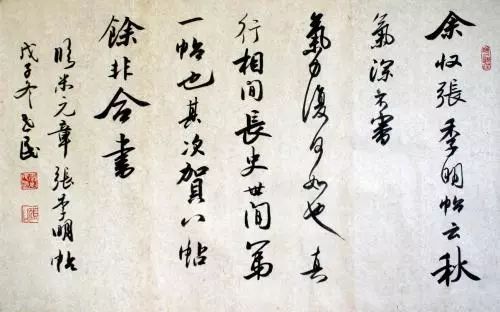 余收張季明帖云秋
氣深不審
氣力復何如也真
行相間長史世間第
一帖也其次賀八帖
餘非合書
臨米元章張季明帖
戊子冬民